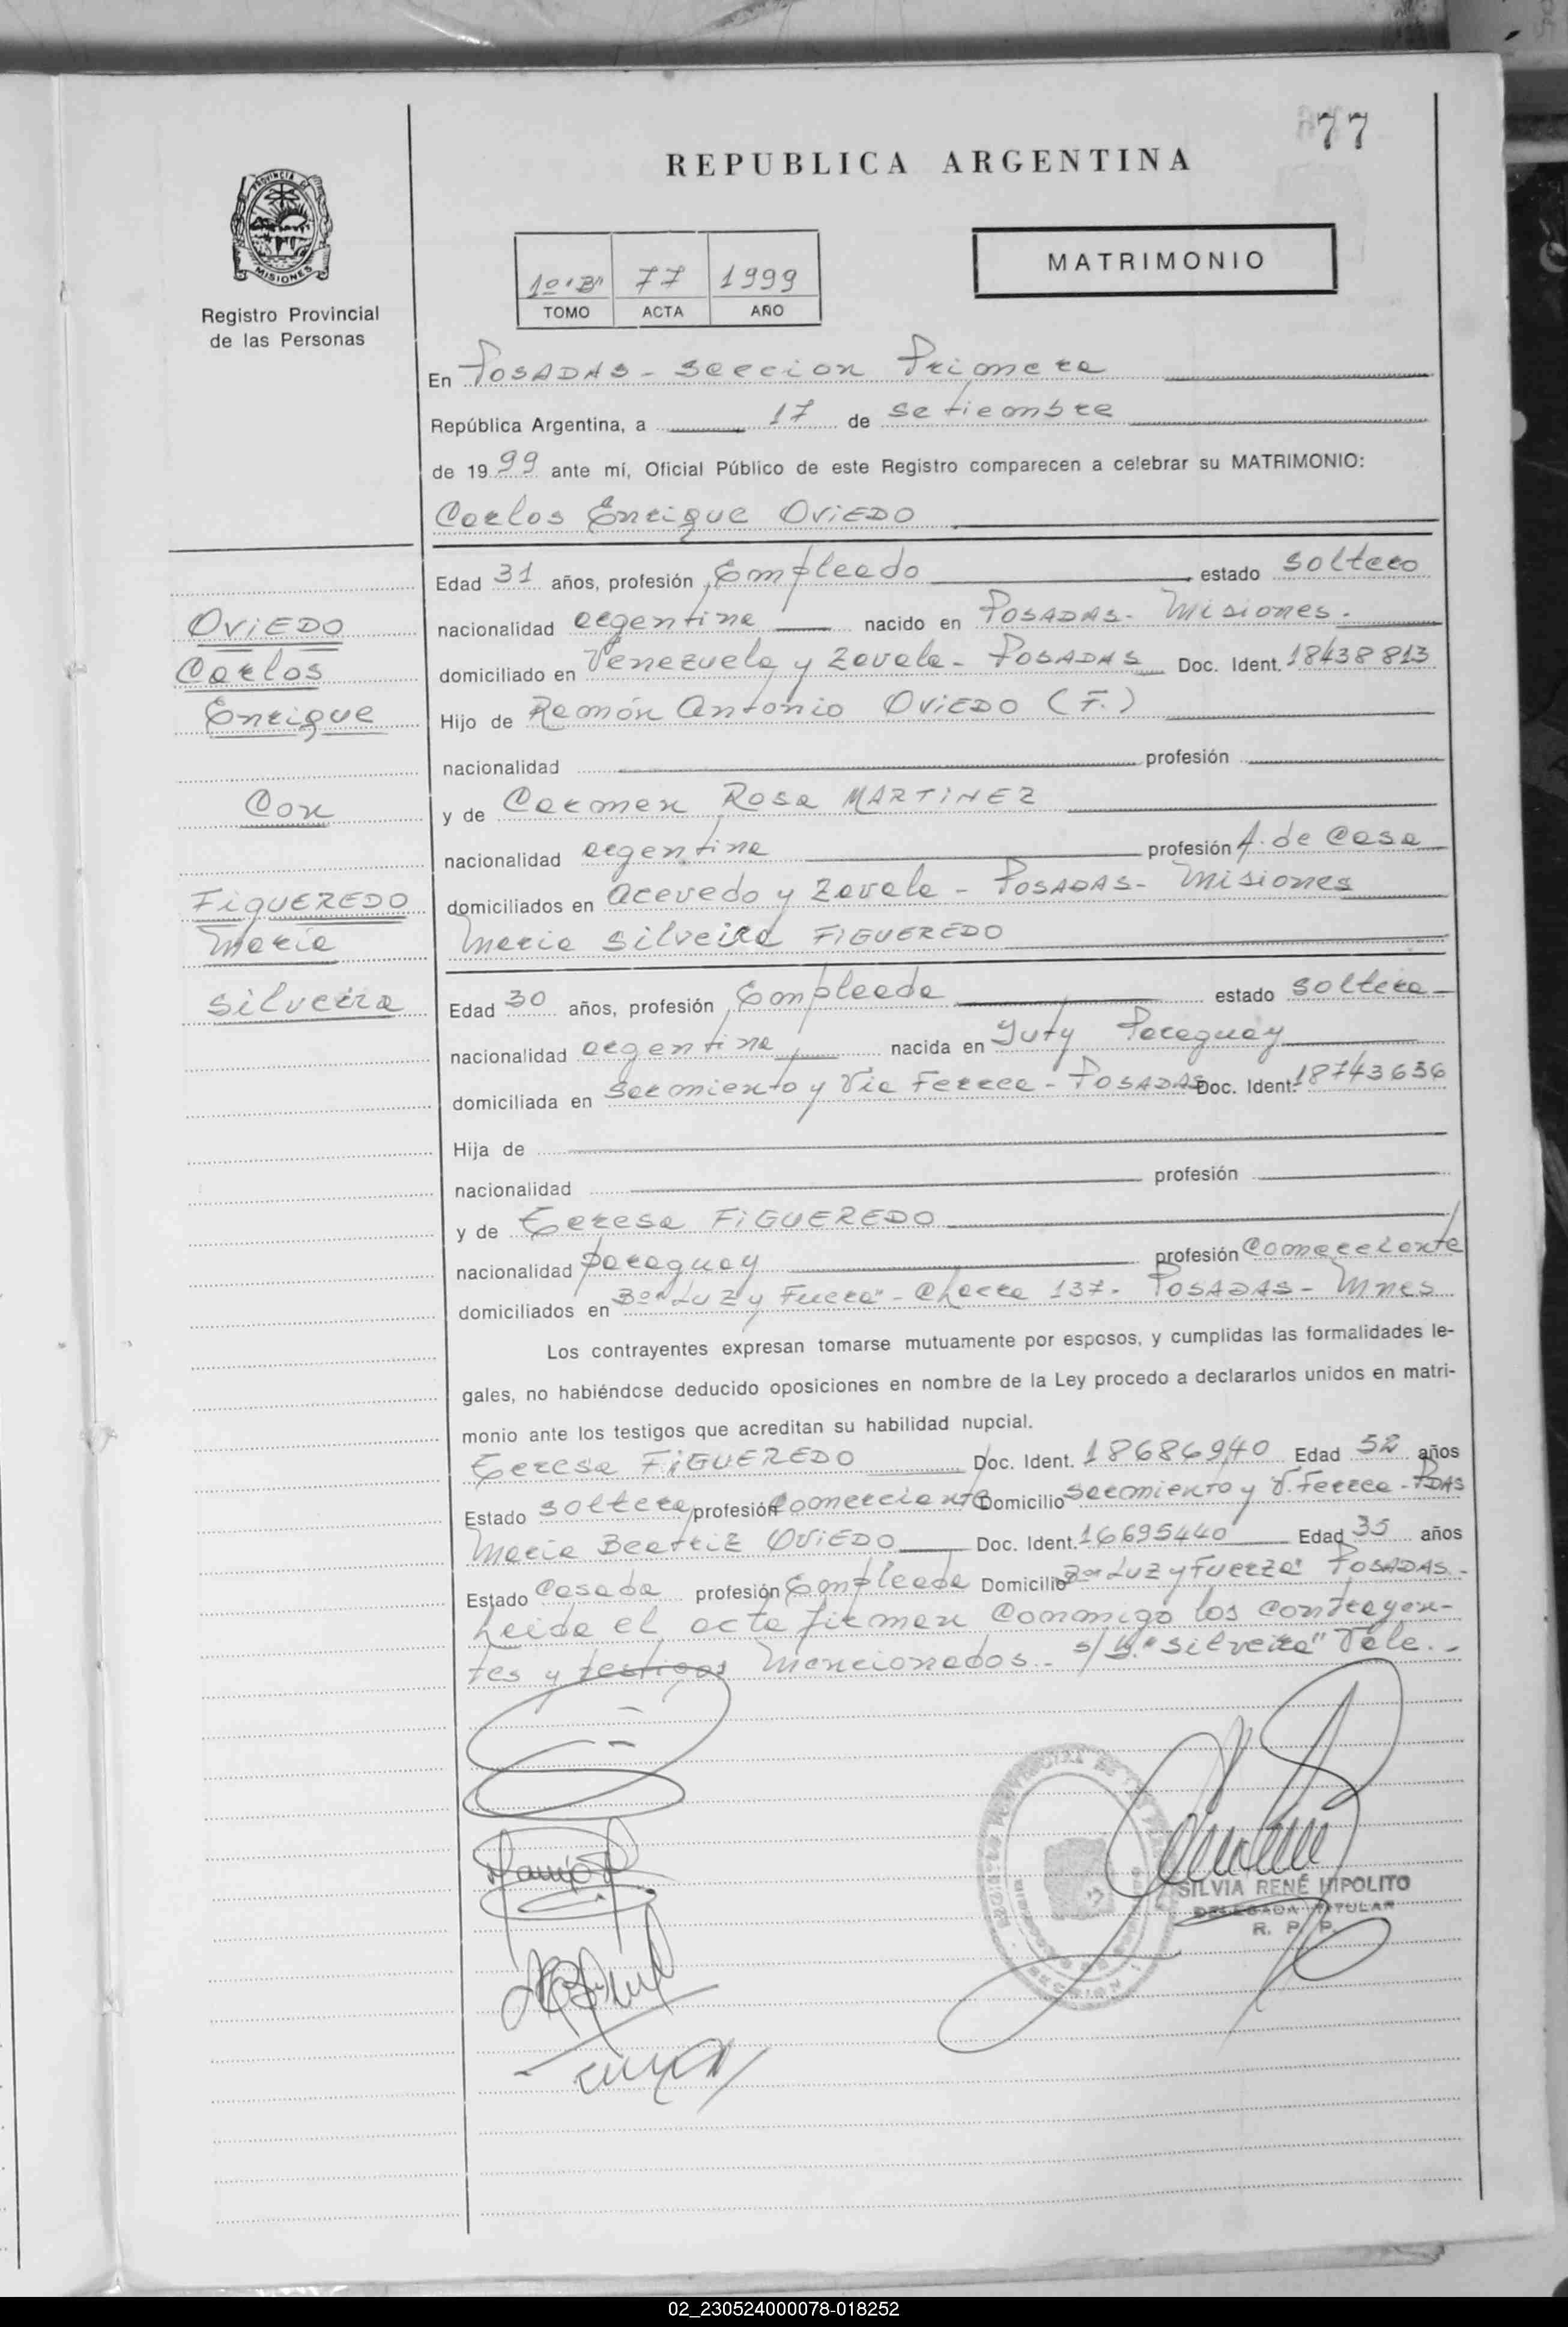 77
REPUBLICA ARGENTINA
PROVINCIA DE
MISIONES
Registro Provincial
de las Personas
1º "B" 77 1999
TOMO ACTA AÑO
MATRIMONIO
En POSADAS - seccion Primera
República Argentina, a 17 de setiembre
de 1999 ante mí, Oficial Público de este Registro comparecen a celebrar su MATRIMONIO:
Carlos Enrique OViEDO
Edad 31 años, profesión Empleado estado soltero
nacionalidad argentina nacido en POSADAS - Misiones.
domiciliado en Venezuela y Zavala - POSADAS Doc. Ident. 18438813
Hijo de Ramón Antonio OViEDO (F.)
nacionalidad profesión
y de Carmen Rosa MARTiNEZ
nacionalidad argentina profesión A. de Casa
domiciliados en Acevedo y Zavala - POSADAS - Misiones
OViEDO
Carlos
Enrique
Con
FiGUEREDO
Maria
silveira
Maria silveira FiGUEREDO
Edad 30 años, profesión Empleada estado soltera
nacionalidad argentina nacida en Yuty Paraguay
domiciliada en Sarmiento y Via Ferrea - POSADAS Doc. Ident. 18743636
Hija de
nacionalidad profesión
y de Teresa FiGUEREDO
nacionalidad paraguay profesión comerciante
domiciliados en Bº "Luz y Fuerza" - Chacra 137 - POSADAS - Mnes
Los contrayentes expresan tomarse mutuamente por esposos, y cumplidas las formalidades le-
gales, no habiéndose deducido oposiciones en nombre de la Ley procedo a declararlos unidos en matri-
monio ante los testigos que acreditan su habilidad nupcial.
Teresa FiGUEREDO Doc. Ident. 18686940 Edad 52 años
Estado soltera profesión comerciante Domicilio Sarmiento y V. Ferrea - PDAS
Maria Beatriz OViEDO Doc. Ident. 16695440 Edad 35 años
Estado Casada profesión Empleada Domicilio Bº "Luz y Fuerza" POSADAS -
Leida el acta firman conmigo los contrayen-
tes y testigos mencionados - s/b. "silveira" Vale. -
SILVIA RENÉ HIPOLITO
DELEGADA TITULAR
R. P. P.
02_230524000078-018252